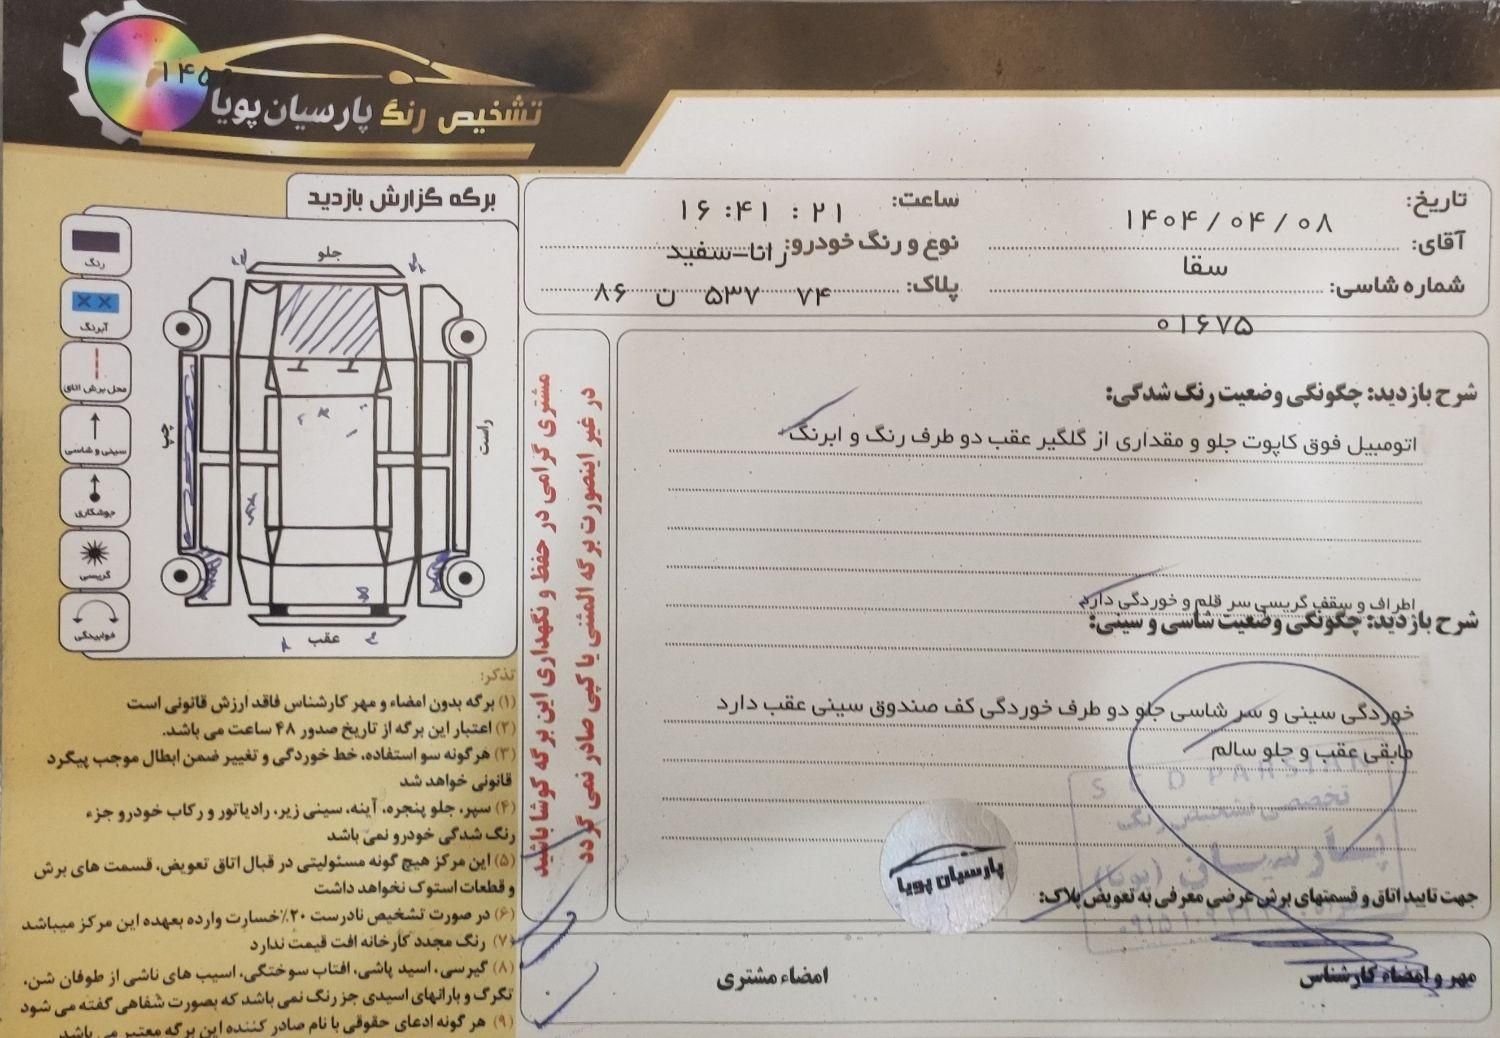 ۱۴۵
تشخیص رنگ پارسیان پویا
تاریخ: ۱۴۰۴/۰۴/۰۸
ساعت: ۱۶:۴۱:۲۱
آقای: سقا
نوع و رنگ خودرو: رانا-سفید
شماره شاسی: ۰۱۶۷۵
پلاک: ۸۶ ن ۵۳۷ ۷۴
برگه گزارش بازدید
رنگ
آبرنگ
محل برش اتاق
سینی و شاسی
جوشکاری
گریسی
خوابیدگی
جلو
چپ
راست
عقب
مشتری گرامی در حفظ و نگهداری این برگه کوشا باشید
در غیر اینصورت برگه المثنی یا کپی صادر نمی گردد
شرح بازدید: چگونگی وضعیت رنگ شدگی:
اتومبیل فوق کاپوت جلو و مقداری از گلگیر عقب دو طرف رنگ و ابرنگ
اطراف و سقف گریسی سر قلم و خوردگی دارد
شرح بازدید: چگونگی وضعیت شاسی و سینی:
خوردگی سینی و سر شاسی جلو دو طرف خوردگی کف صندوق سینی عقب دارد
مابقی عقب و جلو سالم
تخصصی تشخیص رنگ
پارسیان (پویا)
پارسیان پویا
جهت تایید اتاق و قسمتهای برش عرضی معرفی به تعویض پلاک:
مهر و امضاء کارشناس
امضاء مشتری
تذکر:
(۱) برگه بدون امضاء و مهر کارشناس فاقد ارزش قانونی است
(۲) اعتبار این برگه از تاریخ صدور ۴۸ ساعت می باشد.
(۳) هرگونه سو استفاده، خط خوردگی و تغییر ضمن ابطال موجب پیگرد
قانونی خواهد شد
(۴) سپر، جلو پنجره، آینه، سینی زیر، رادیاتور و رکاب خودرو جزء
رنگ شدگی خودرو نمی باشد
(۵) این مرکز هیچ گونه مسئولیتی در قبال اتاق تعویض، قسمت های برش
و قطعات استوک نخواهد داشت
(۶) در صورت تشخیص نادرست ۲۰٪ خسارت وارده بعهده این مرکز میباشد
(۷) رنگ مجدد کارخانه افت قیمت ندارد
(۸) گیرسی، اسید پاشی، افتاب سوختگی، اسیب های ناشی از طوفان شن،
تگرگ و بارانهای اسیدی جز رنگ نمی باشد که بصورت شفاهی گفته می شود
(۹) هر گونه ادعای حقوقی با نام صادر کننده این برگه معتبر می باشد